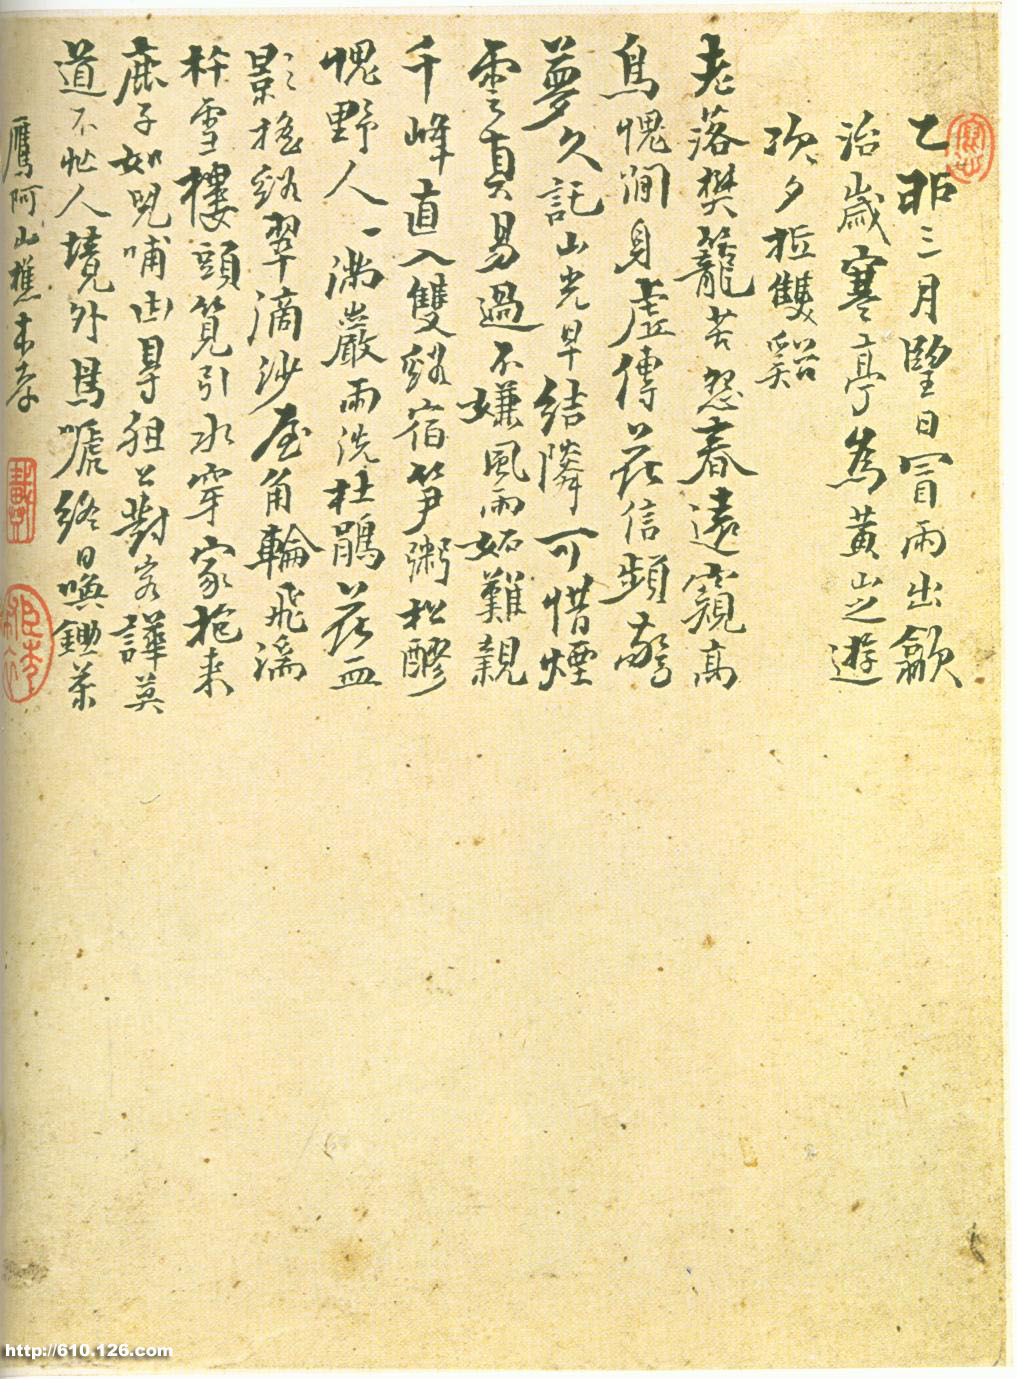 乙邜三月望日冒雨出歙
治歲寒亭為黃山之遊
次夕抵雙谿
老落樊籠苦怨春遠窺高
鳥愧澗身虛傳花信頻驚
夢久託山光早結隣可惜煙
雲真易過不嫌風雨妬難親
千峰直入雙谿宿笋粥松醪
愧野人一滿巖雨洗杜鵑花血
影搖谿翠滴沙屋角輪飛湍
杵雪樓頭筧引水穿家抱来
鹿子如兒哺出尋狙公對客譁莫
道不忙人境外鳥嘑終日喚鋤茶
鷹阿山樵本孝
http://610.126.com